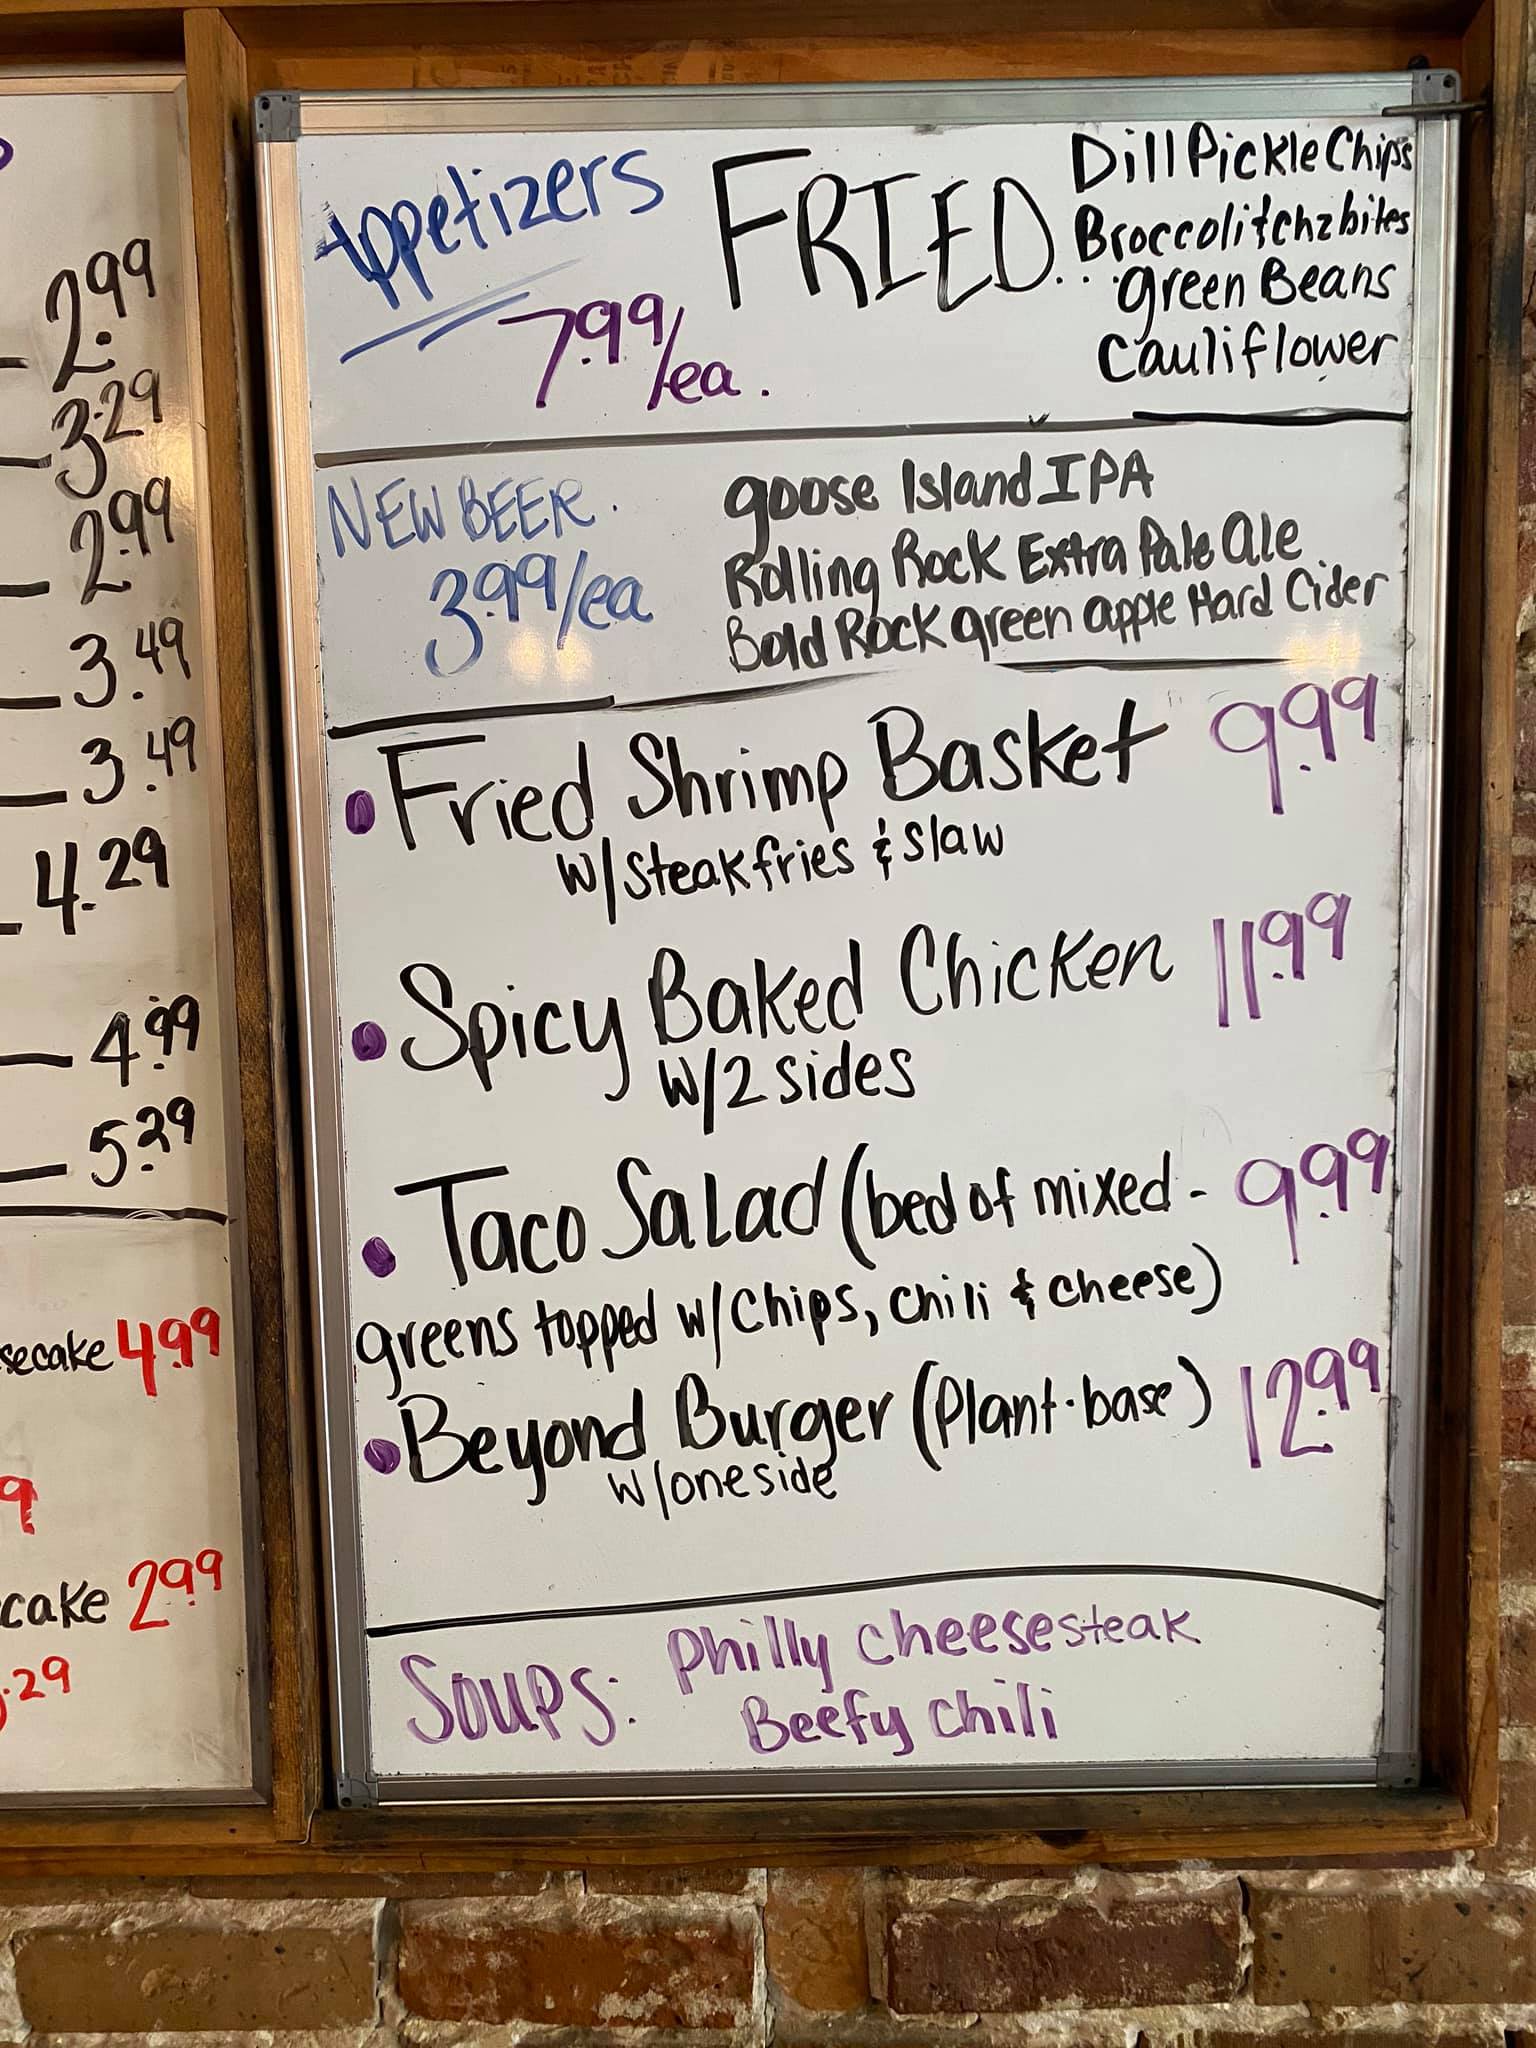 2.99
3.29
2.99
3.49
3.49
4.29
4.99
5.29
secake 4.99
9
cake 2.99
.29
Appetizers
7.99/ea.
FRIED...
Dill Pickle Chips
Broccoli & chz bites
green Beans
Cauliflower
NEW BEER.
3.99/ea
goose Island IPA
Rolling Rock Extra Pale Ale
Bold Rock green apple Hard Cider
• Fried Shrimp Basket 9.99
w/steak fries & slaw
• Spicy Baked Chicken 11.99
w/2 sides
• Taco Salad (bed of mixed - 9.99
greens topped w/chips, chili & cheese)
• Beyond Burger (Plant-base) 12.99
w/one side
Soups: Philly cheesesteak
Beefy chili